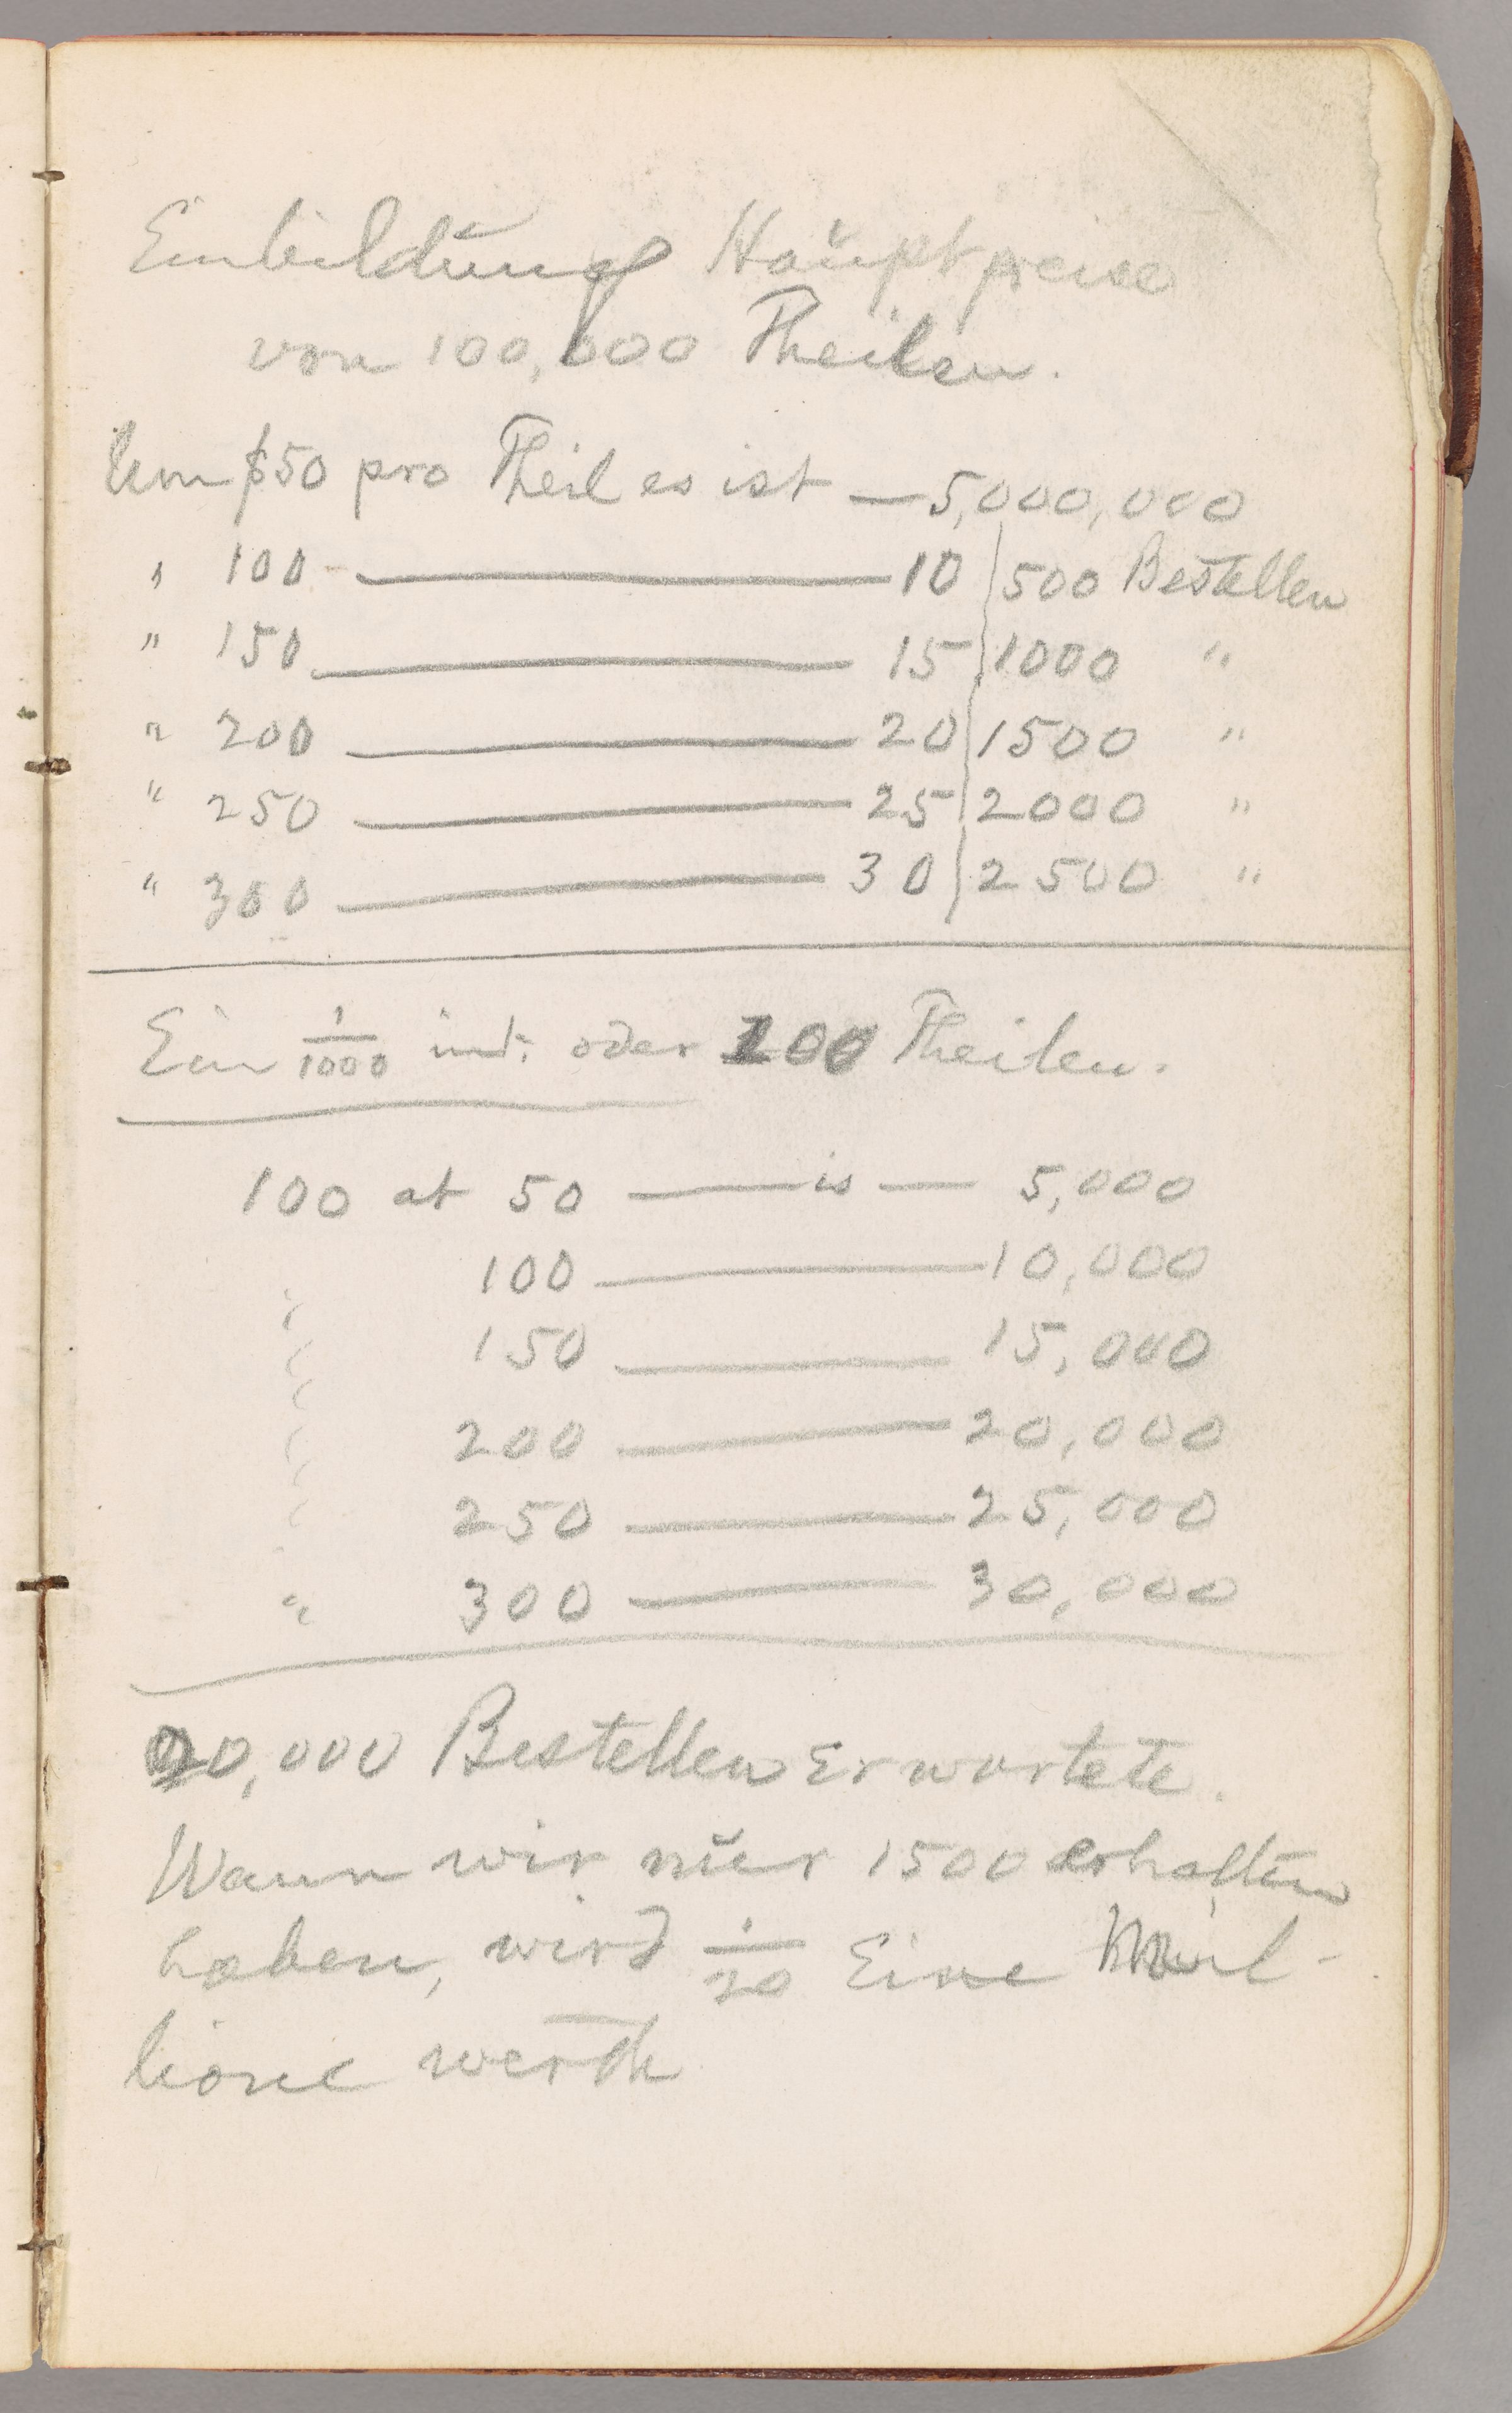 Einbildung Hauptpreise
von 100,000 Theilen.
Um $50 pro Theil es ist — 5,000,000
" 100 — 10 | 500 Bestellen
" 150 — 15 | 1000 "
" 200 — 20 | 1500 "
" 250 — 25 | 2000 "
" 300 — 30 | 2500 "
Ein 1/1000 int. oder 100 Theilen.
100 at 50 — is — 5,000
100 — 10,000
" 150 — 15,000
" 200 — 20,000
" 250 — 25,000
" 300 — 30,000
20,000 Bestellen Erwartete.
Wann wir nur 1500 erhalten
haben, wird 1/20 Eine Mil-
lione werth